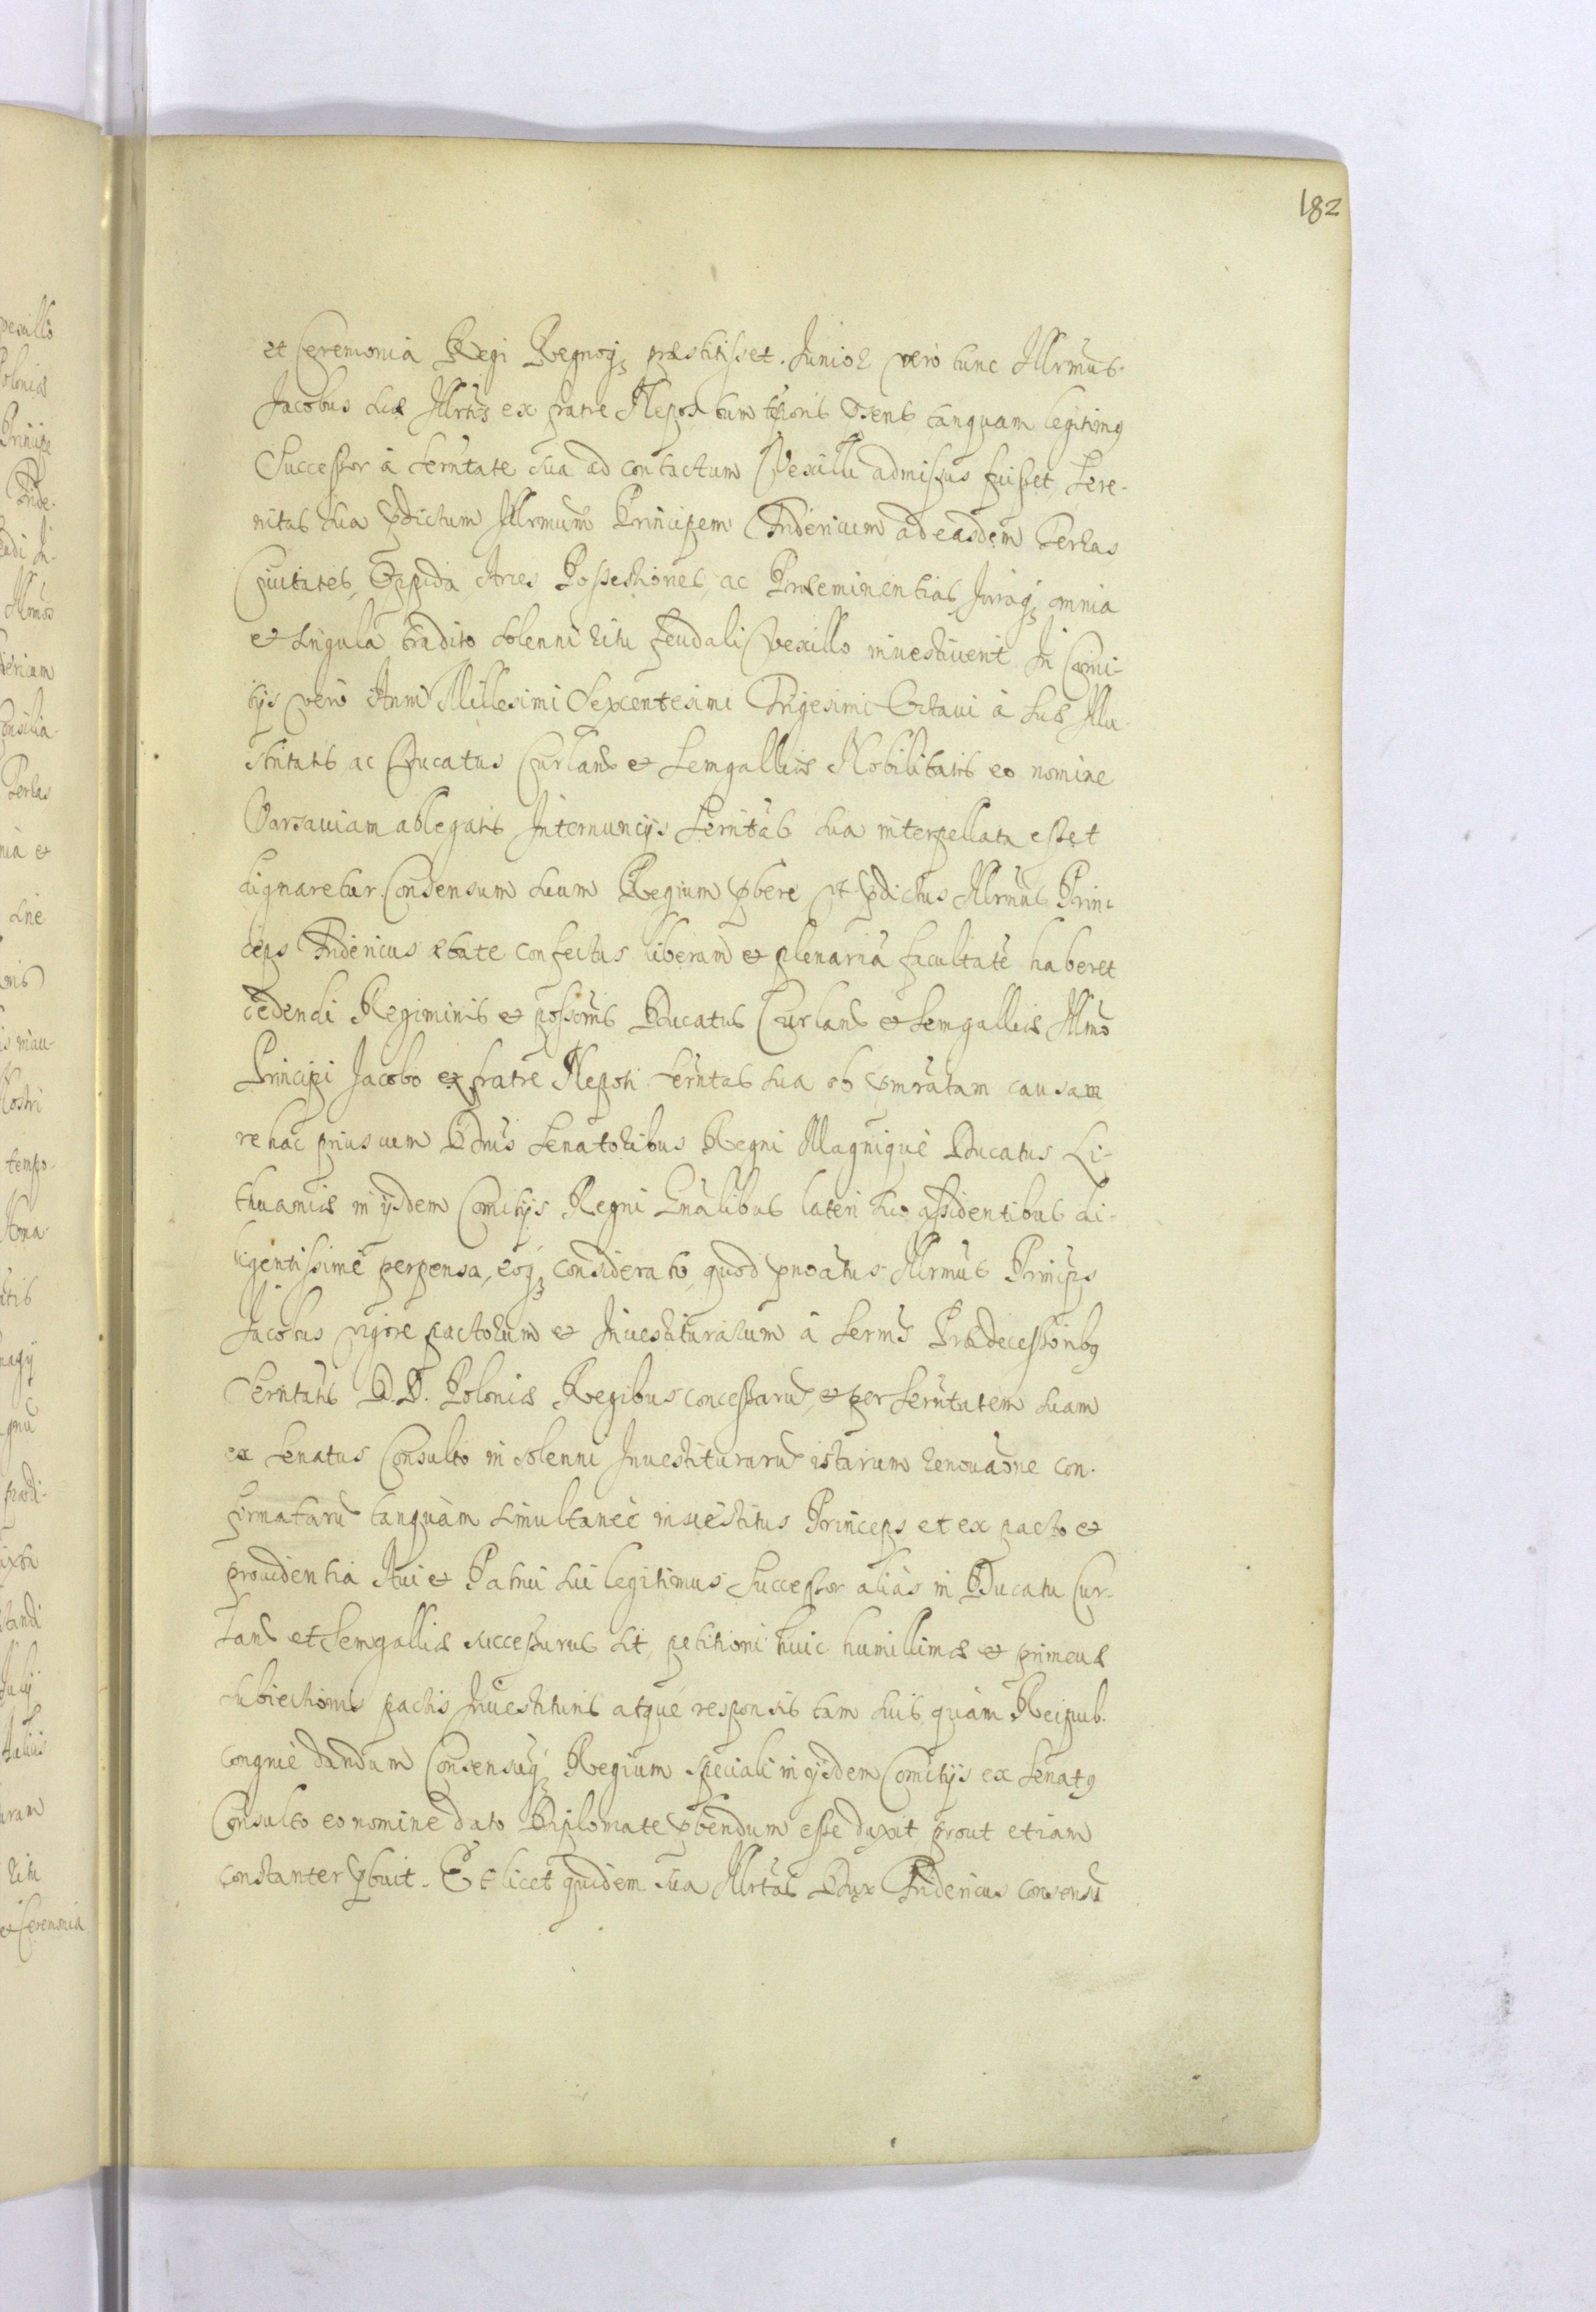 182
et Ceremonia Regi Regnoq; præstitisset. Junior vero tunc Illrmus
Jacobus suæ Illrtis ex fratre Nepos tum tporis tanquam legitimq
Successor à Serntate sua ad contactum Vexilli admissus fuisset, Sere-
nitas sua pdictum Illrmum Principem Fridericum ad easdem Terras
Ciuitates, Oppida Arces Possessiones, ac Præeminentias Juraq; omnia
et singula tradito solenni ritu feudali Vexillo inuestiuerit. In Comi-
tijs vero Anni Millesimi Sexcentesimi Trigesimi Octaui à suæ Illu-
stritatis ac Ducatus Curlanæ et Semgalliæ Nobilitatis eo nomine
Varsauiam ablegatis Internuncijs Sernitas sua interpellata esset
dignaretur Consensum suum Regium pbere vt pdictus Illrmus Prin-
ceps Fridericus ætate confectus liberam et plenariā facultatē haberet
cedendi Regiminis et possonis Ducatus Curlanæ et Semgalliæ Illmo
Principi Jacobo ex fratre Nepoti Serntas sua ob causam
re hac prius cum Dnis Senatoribus Regni Magnique Ducatus Li-
thuaniæ in ijsdem Comitijs Regni Gnalibus lateri suo assidentibus di-
ligentissime perpensa, eoq; considerato, quod Illrmus Princips
Jacobus vigore pactorum et Inuestiturarum à Sermis Prædecessoribq
Serntatis D. D. Poloniæ Regibus concessarū, et per Serntatem suam
ex Senatus Consulto in solenni Inuestiturarū istarum renouaōne con-
firmatarū tanquàm simultaneè inuestitus Princeps et ex pacto et
prouidentia Aui et Patrui sui legitimus Successor aliàs in Ducatu Cur-
lanæ et Semgalliæ successurus sit, petitioni huic humillimæ et primeuæ
subiectionis pactis Inuestituris atque responsis tam suis quàm Reipub.
congrue dandum Consensuq; Regium speciali in ijsdem Comitijs ex Senatq
Consulto eo nomine dato Diplomate pbendum esse duxit prout etiam
constanter pbuit. Et licet quidem sua Illrtas Dux Fridericus consensu